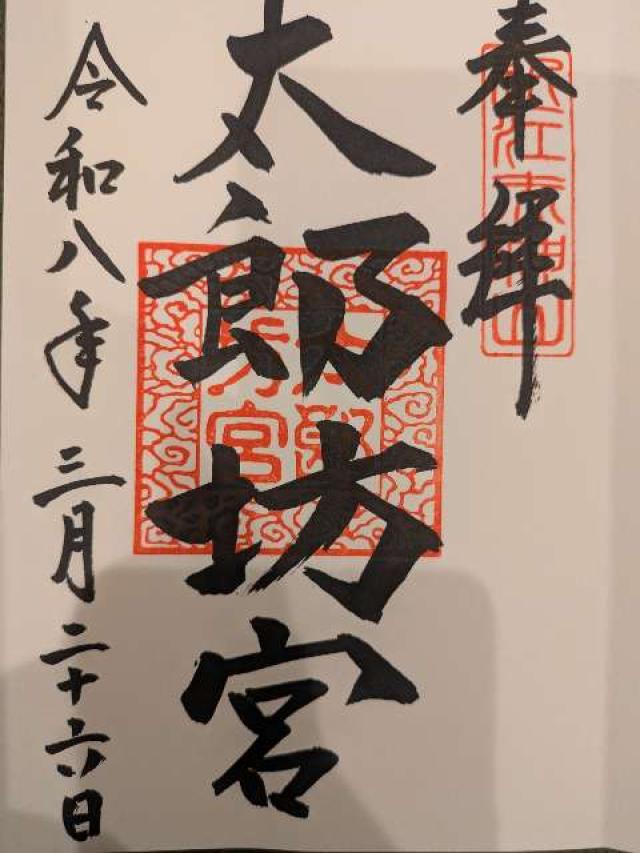 奉拝
近江赤神山
太郎坊宮
太郎坊宮
令和八年三月二十六日